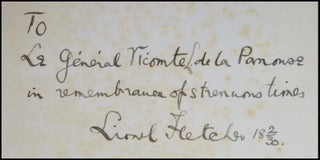 TO
Le Général Vicomte de la Panouse
in remembrance of strenuous times
Lionel Fletcher 18 2/30.